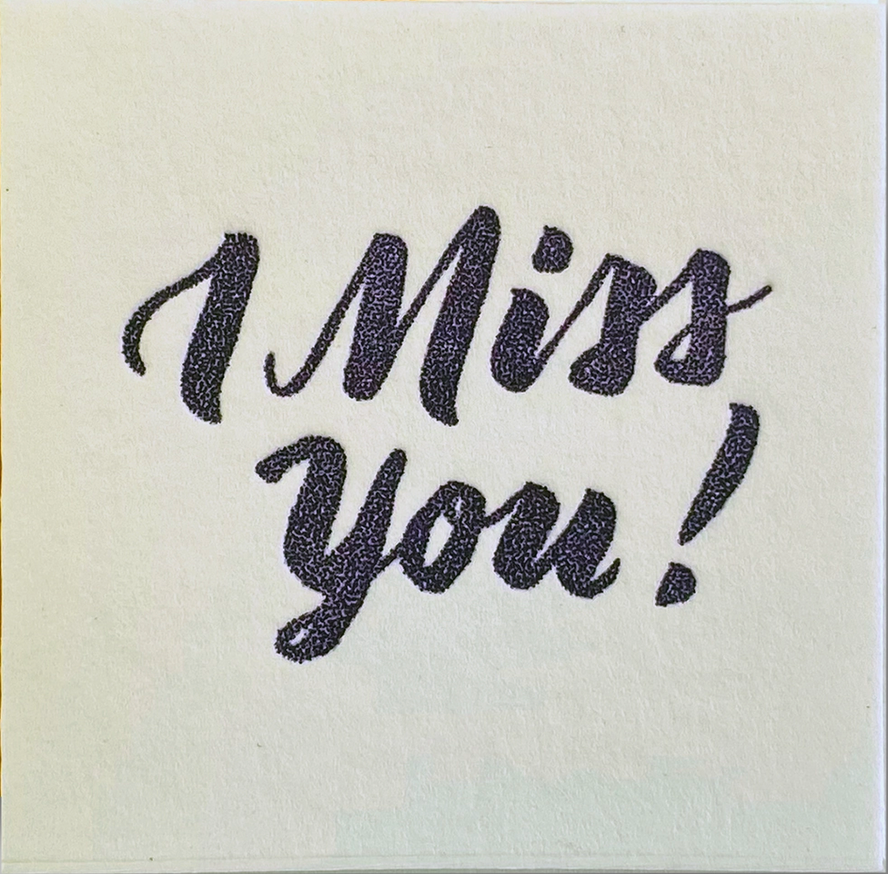 I Miss
You!